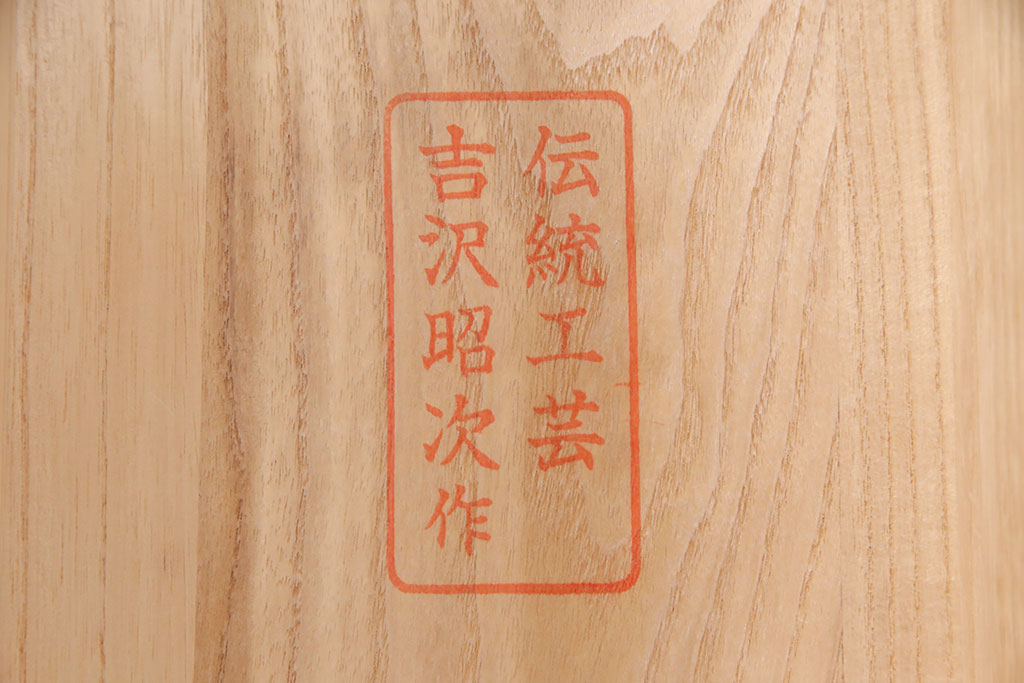 伝統工芸
吉沢昭次作